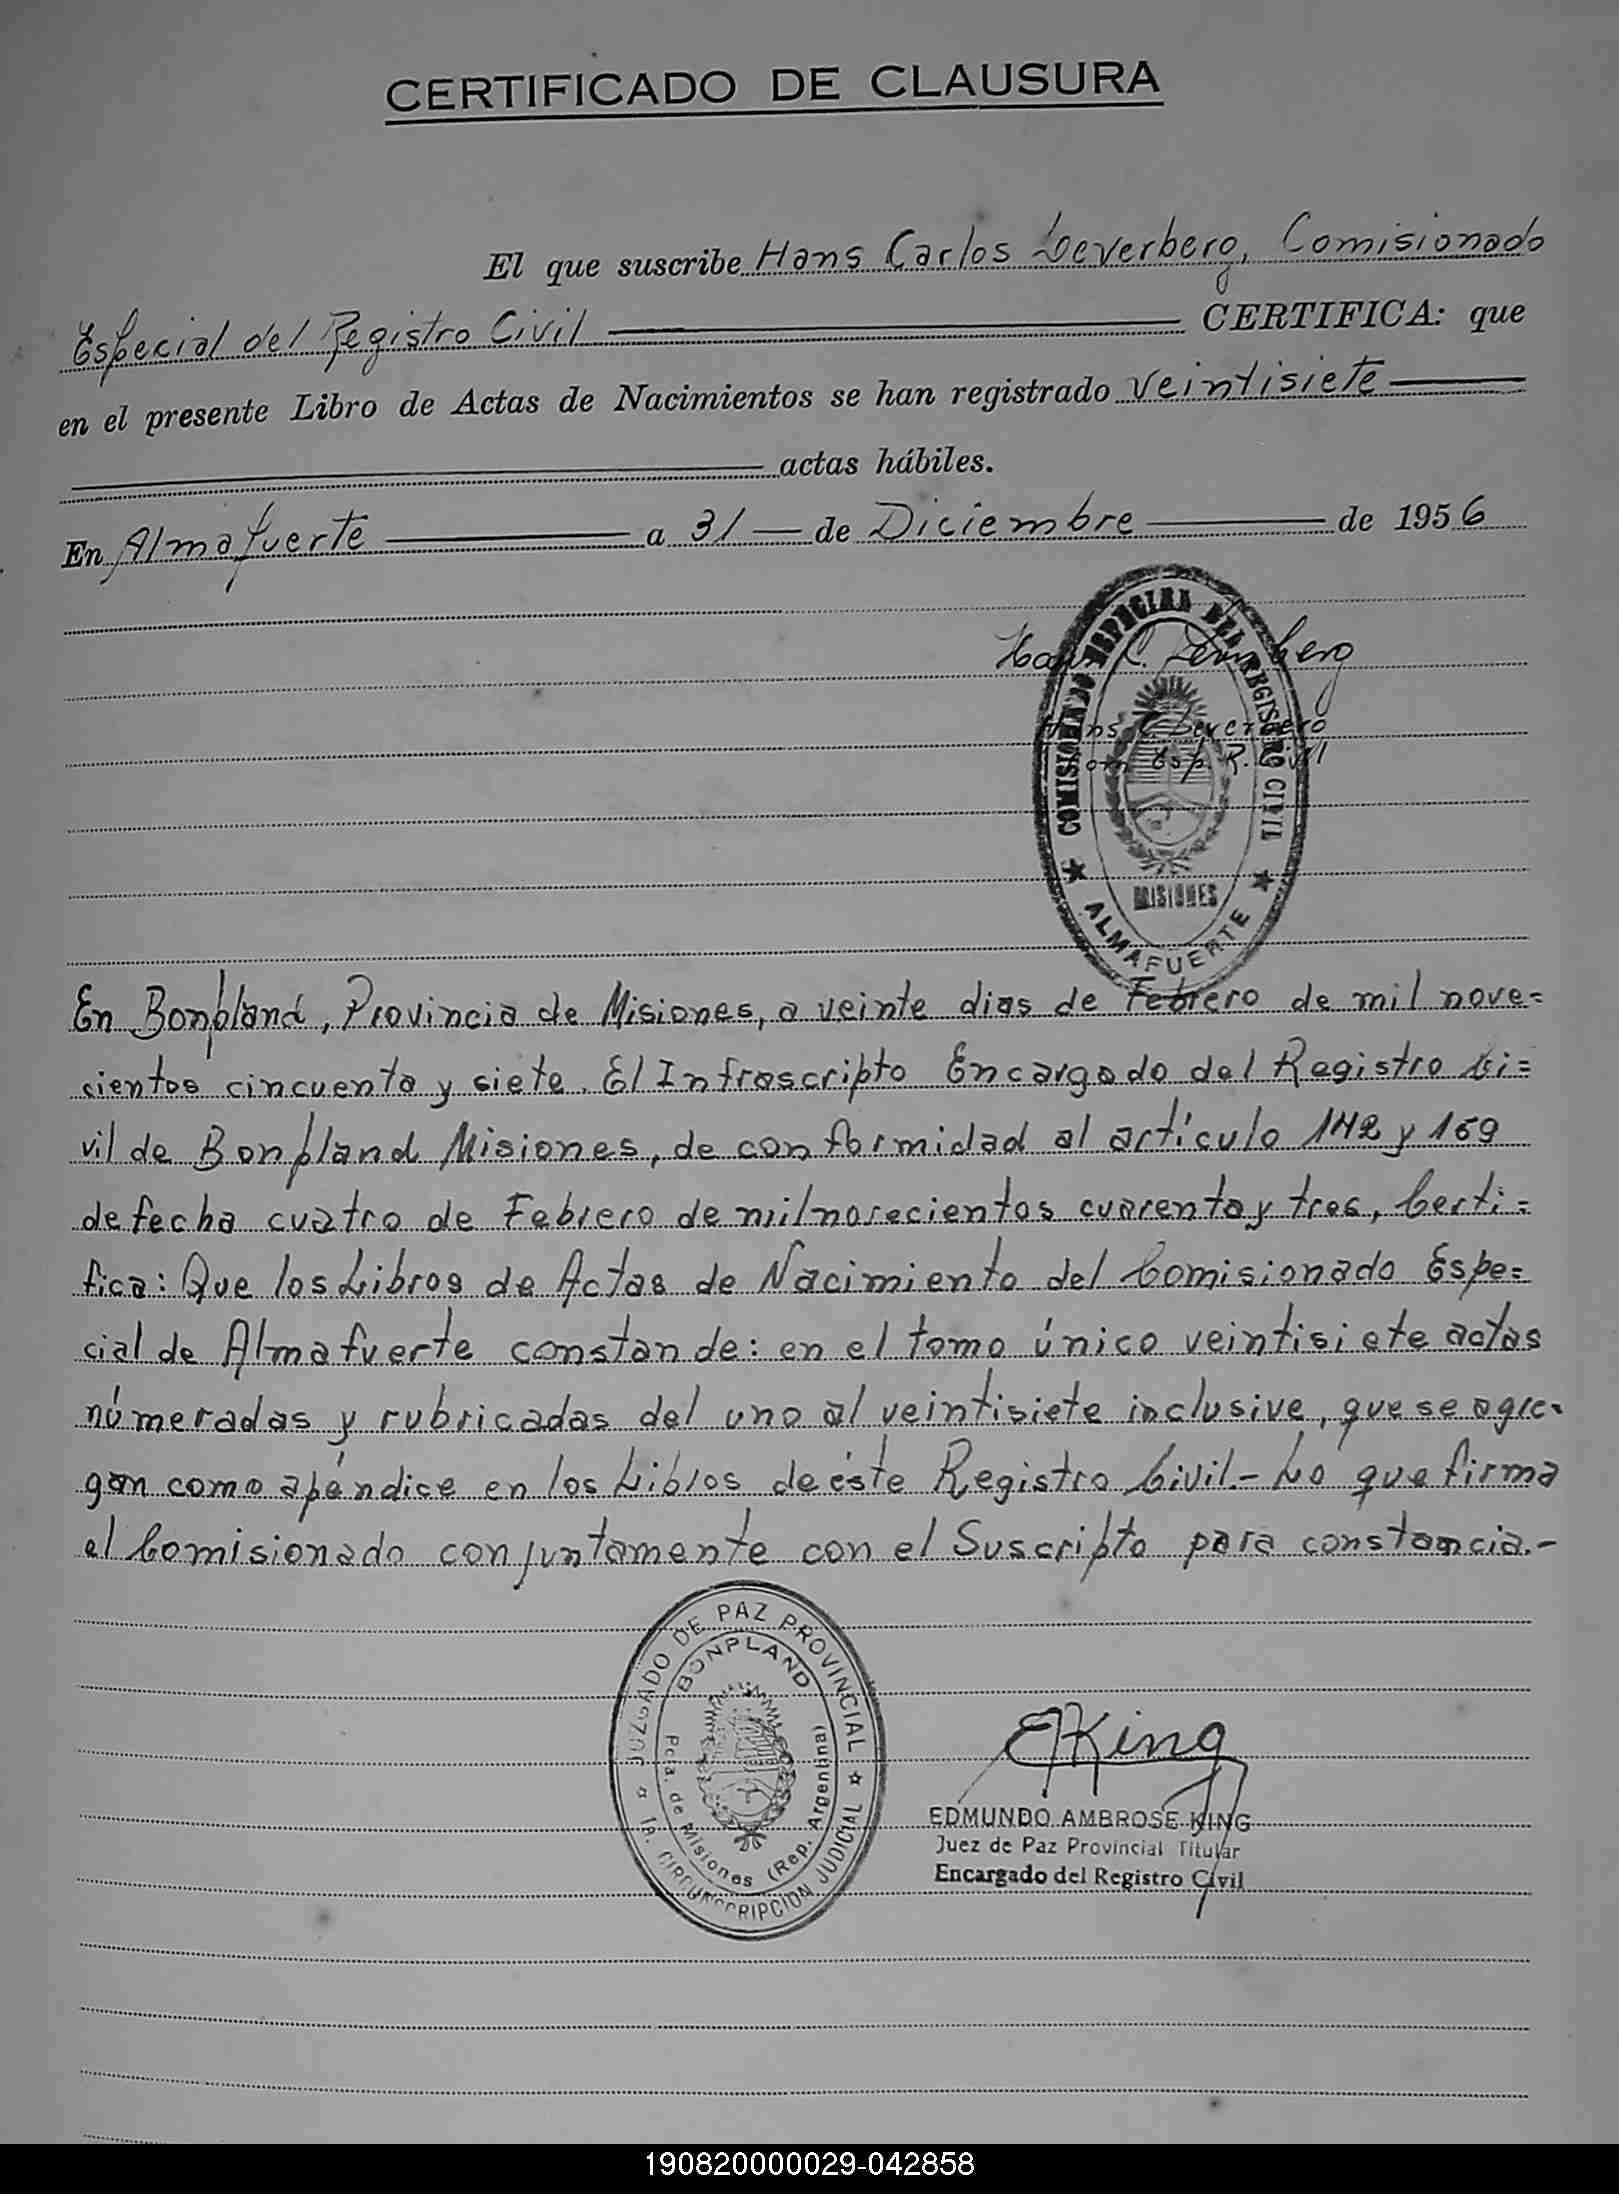 CERTIFICADO DE CLAUSURA
El que suscribe Hans Carlos Leverberg, Comisionado
Especial del Registro Civil CERTIFICA: que
en el presente Libro de Actas de Nacimientos se han registrado veintisiete
actas hábiles.
En Almafuerte a 31 de Diciembre de 1956
Hans C. Leverberg
Hans C. Leverberg
Com. Esp. R. Civil
COMISIONADO ESPECIAL DEL REGISTRO CIVIL
MISIONES
ALMAFUERTE
En Bonpland, Provincia de Misiones, a veinte dias de Febrero de mil nove=
cientos cincuenta y siete. El Infrascripto Encargado del Registro Ci=
vil de Bonpland Misiones, de conformidad al artículo 142 y 169
de fecha cuatro de Febrero de mil novecientos cuarenta y tres, Certi=
fica: Que los Libros de Actas de Nacimiento del Comisionado Espe=
cial de Almafuerte constan de: en el tomo único veintisiete actas
númeradas y rubricadas del uno al veintisiete inclusive, que se agre-
gan como apéndice en los Libros de éste Registro Civil.- Lo que firma
el Comisionado conjuntamente con el Suscripto para constancia.-
JUZGADO DE PAZ PROVINCIAL
BONPLAND
Pcia. de Misiones (Rep. Argentina)
1a. CIRCUNSCRIPCION JUDICIAL
EKing
EDMUNDO AMBROSE KING
Juez de Paz Provincial Titular
Encargado del Registro Civil
190820000029-042858